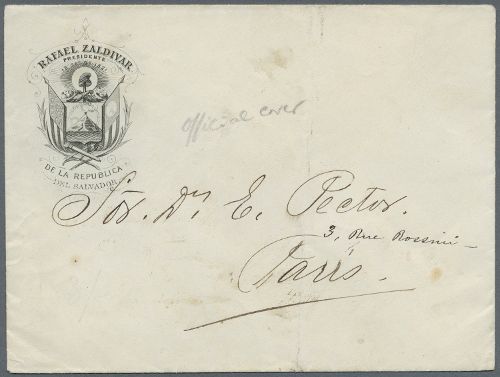 RAFAEL ZALDIVAR
PRESIDENTE
DE LA REPUBLICA
DEL SALVADOR
official cover
Sór. Dn. E. Pector.
3, Rue Rossini
París.